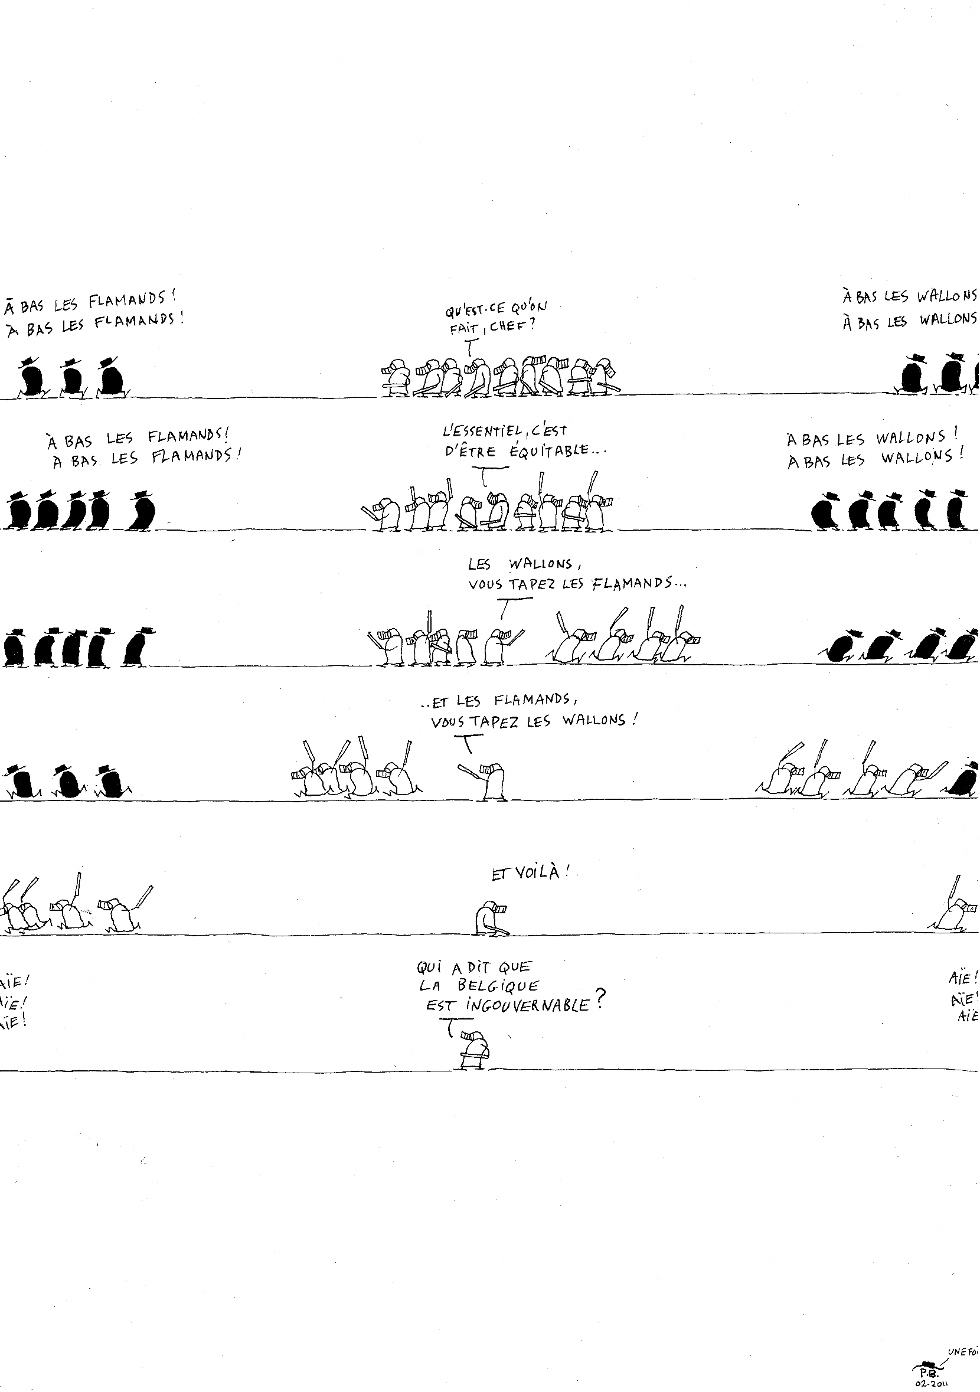 À BAS LES FLAMANDS!
À BAS LES FLAMANDS!
QU'EST-CE QU'ON
FAIT, CHEF?
À BAS LES WALLONS
À BAS LES WALLONS
À BAS LES FLAMANDS!
À BAS LES FLAMANDS!
L'ESSENTIEL, C'EST
D'ÊTRE ÉQUITABLE...
À BAS LES WALLONS!
À BAS LES WALLONS!
LES WALLONS,
VOUS TAPEZ LES FLAMANDS...
..ET LES FLAMANDS,
VOUS TAPEZ LES WALLONS!
ET VOILÀ!
AÏE!
AÏE!
AÏE!
QUI A DIT QUE
LA BELGIQUE
EST INGOUVERNABLE?
AÏE!
AÏE
AÏE
UNE
P.B.
02-2011